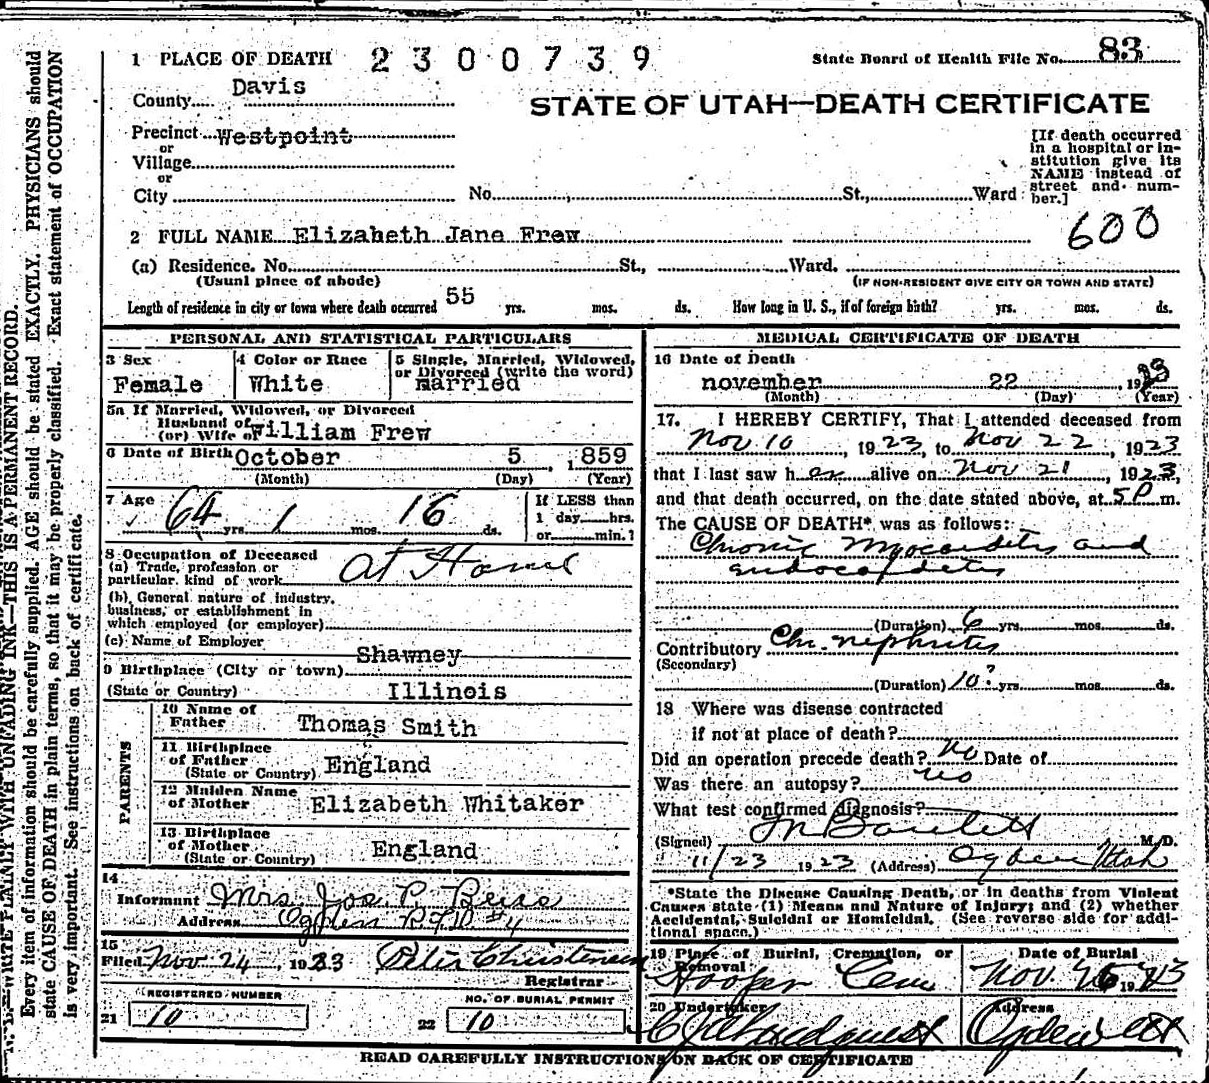 1 PLACE OF DEATH 2300739 State Board of Health File No. 83
County Davis
STATE OF UTAH—DEATH CERTIFICATE
Precinct Westpoint
or
Village
or
City No. St., Ward
[If death occurred
in a hospital or in-
stitution give its
NAME instead of
street and num-
ber.]
600
2 FULL NAME Elizabeth Jane Frew
(a) Residence. No. St., Ward.
(Usual place of abode) (IF NON-RESIDENT GIVE CITY OR TOWN AND STATE)
Length of residence in city or town where death occurred 55 yrs. mos. ds. How long in U. S., if of foreign birth? yrs. mos. ds.
PERSONAL AND STATISTICAL PARTICULARS
3 Sex
Female
4 Color or Race
White
5 Single, Married, Widowed,
or Divorced (write the word)
married
5a If Married, Widowed, or Divorced
Husband of
(or) Wife of William Frew
6 Date of Birth October 5, 1859
(Month) (Day) (Year)
7 Age
64 yrs. 1 mos. 16 ds.
If LESS than
1 day hrs.
or min.?
8 Occupation of Deceased
(a) Trade, profession or
particular kind of work At Home
(b) General nature of industry,
business, or establishment in
which employed (or employer)
(c) Name of Employer
Shawney
9 Birthplace (City or town)
(State or Country) Illinois
PARENTS
10 Name of
Father Thomas Smith
11 Birthplace
of Father
(State or Country) England
12 Maiden Name
of Mother Elizabeth Whitaker
13 Birthplace
of Mother
(State or Country) England
14
Informant Mrs. Jos. P.
Address Ogden R.F.D #4
15
Filed Nov 24, 1923 Peter Christensen
Registrar
REGISTERED NUMBER
21 10
NO. OF BURIAL PERMIT
22 10
MEDICAL CERTIFICATE OF DEATH
16 Date of Death
november 22, 1923
(Month) (Day) (Year)
17. I HEREBY CERTIFY, That I attended deceased from
Nov 10, 1923, to Nov 22, 1923
that I last saw her alive on Nov 21, 1923,
and that death occurred, on the date stated above, at 5 P m.
The CAUSE OF DEATH* was as follows:
Chronic Myocarditis and
endocarditis
(Duration) 6 yrs. mos. ds.
Contributory Chr. nephritis
(Secondary)
(Duration) 10? yrs. mos. ds.
18 Where was disease contracted
if not at place of death?
Did an operation precede death? no Date of
Was there an autopsy? no
What test confirmed diagnosis?
(Signed) Bartlett M. D.
11/23 1923 (Address) Ogden Utah
*State the Disease Causing Death, or in deaths from Violent
Causes state (1) Means and Nature of Injury; and (2) whether
Accidental, Suicidal or Homicidal. (See reverse side for addi-
tional space.)
19 Place of Burial, Cremation, or
Removal
Hooper Cem
Date of Burial
Nov. 1923
20 Undertaker
Address
Ogden
READ CAREFULLY INSTRUCTIONS ON BACK OF CERTIFICATE
N. B.—WRITE PLAINLY WITH UNFADING INK—THIS IS A PERMANENT RECORD.
Every item of information should be carefully supplied. AGE should be stated EXACTLY. PHYSICIANS should
state CAUSE OF DEATH in plain terms, so that it may be properly classified. Exact statement of OCCUPATION
is very important. See instructions on back of certificate.